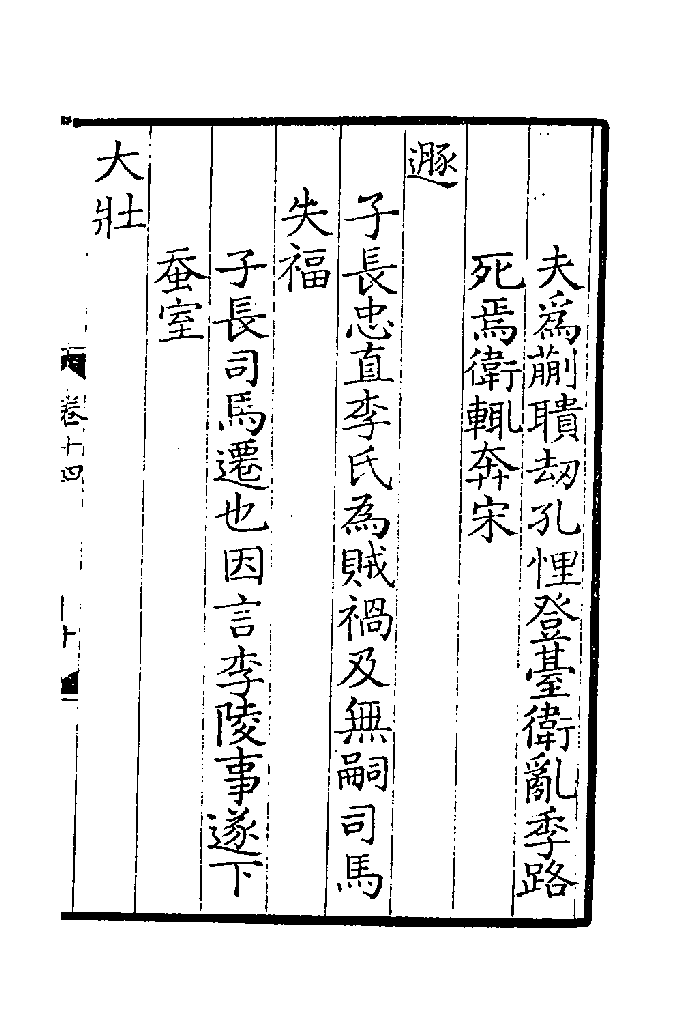 夫爲蒯聵劫孔悝登臺衛亂季路
死焉衛輒奔宋
遯
子長忠直李氏為賊禍及無嗣司馬
失福
子長司馬遷也因言李陵事遂下
蚕室
大壯
卷十四